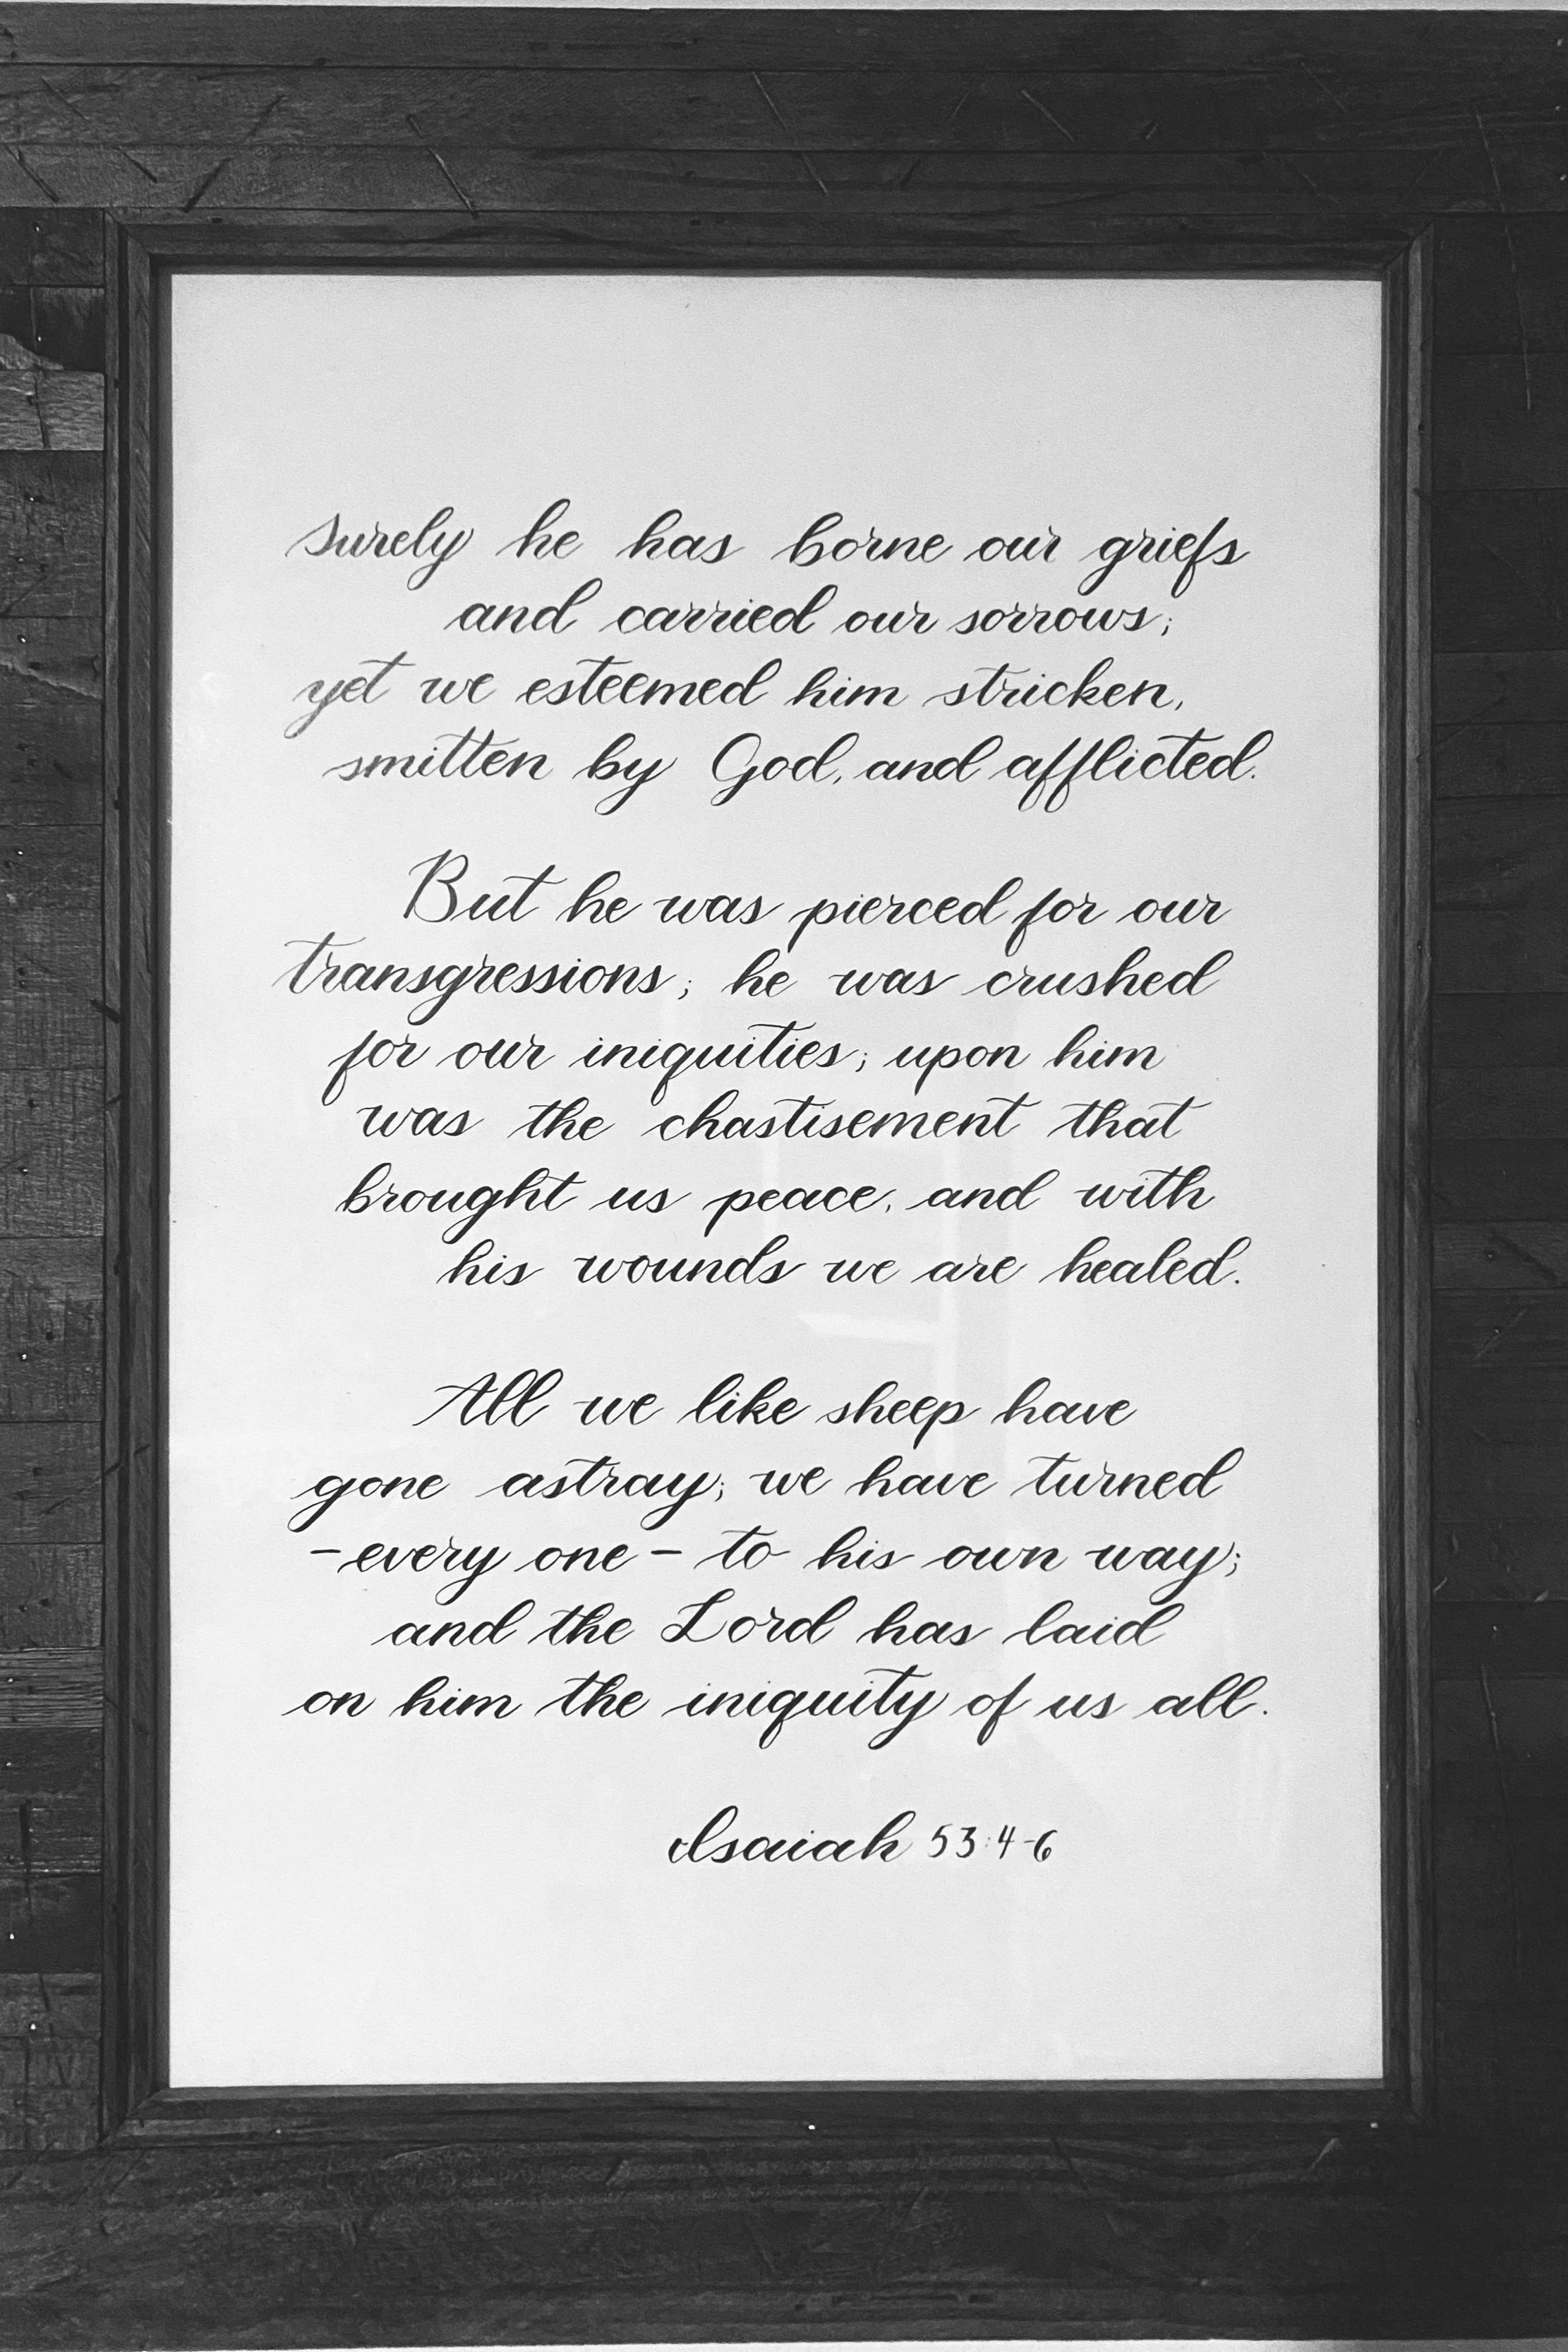 Surely he has borne our griefs
and carried our sorrows;
yet we esteemed him stricken,
smitten by God, and afflicted.
But he was pierced for our
transgressions; he was crushed
for our iniquities; upon him
was the chastisement that
brought us peace, and with
his wounds we are healed.
All we like sheep have
gone astray; we have turned
-every one- to his own way;
and the Lord has laid
on him the iniquity of us all.
Isaiah 53:4-6